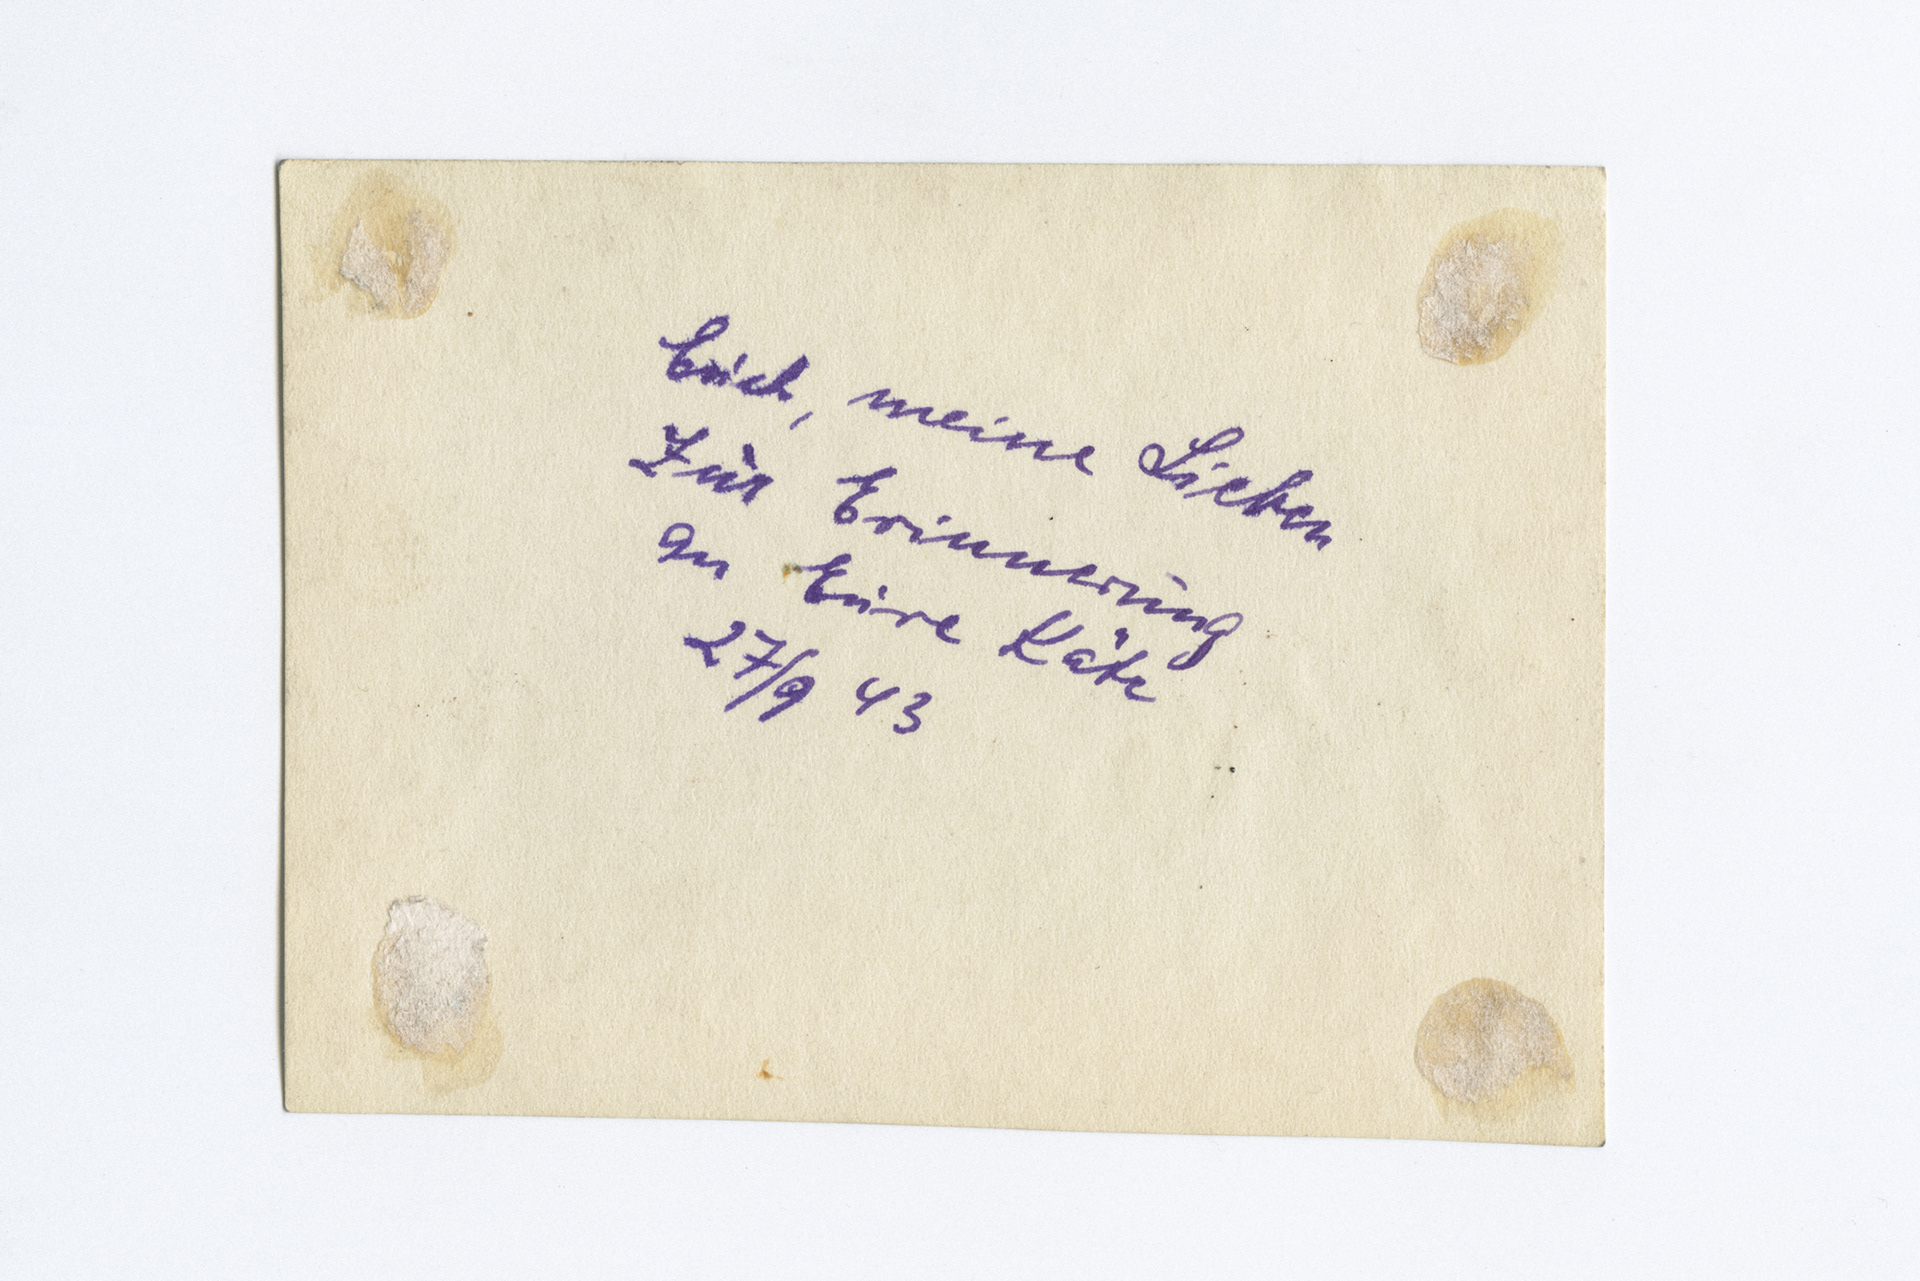 Euch, meine Lieben
Zur Erinnerung
an Eure Käte
27/9 43